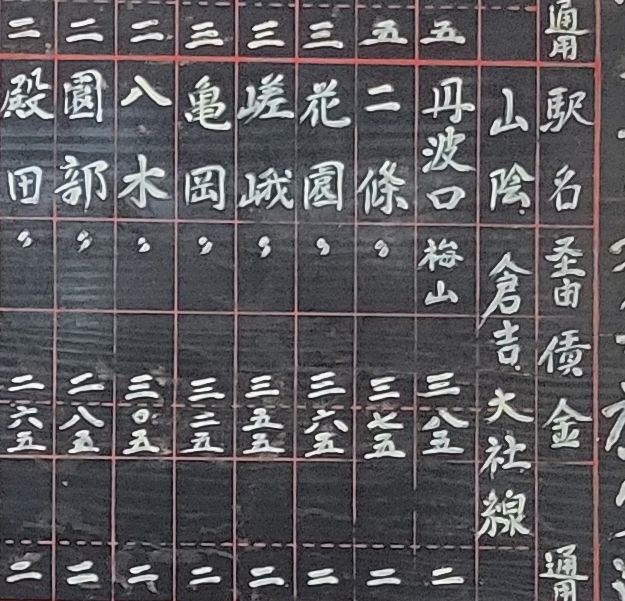 通用
駅名
圣由
債金
通用
山陰
倉吉
大社線
五
丹波口
梅山
三八五
二
五
二條
〃
三七五
二
三
花園
〃
三六五
二
三
嵯峨
〃
三五五
二
三
亀岡
〃
三二五
二
二
八木
〃
三〇五
二
二
園部
〃
二八五
二
二
殿田
〃
二六五
二